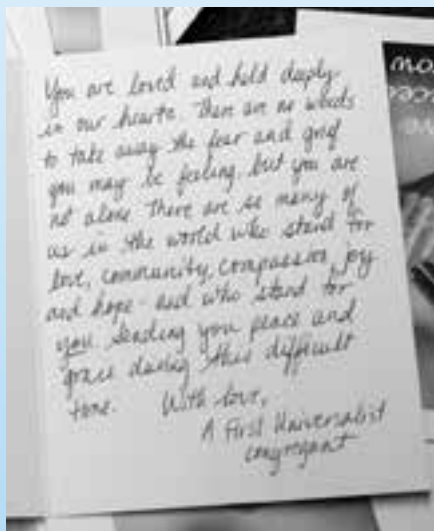 You are loved and held deeply
in our hearts. There are no words
to take away the fear and grief
you may be feeling, but you are
not alone. There are so many of
us in the world who stand for
love, community, compassion, joy
and hope - and who stand for
you. Sending you peace and
grace during this difficult
time. With love,
A First Universalist
congregant